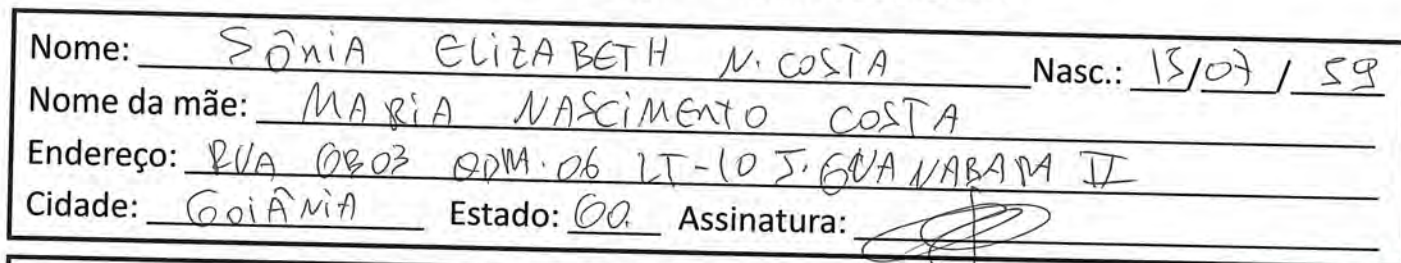 Nome: SÔNIA ELIZABETH N. COSTA Nasc.: 15/07/59
Nome da mãe: MARIA NASCIMENTO COSTA
Endereço: RUA GB03 QDM. 06 LT-10 J. GUANABARA II
Cidade: GOIÂNIA Estado: GO. Assinatura: